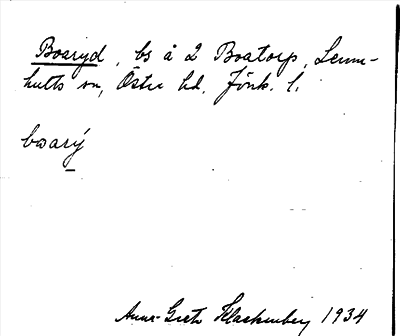 Boaryd, bs å 2 Boatorp, Lemn-
hults sn, Östra hd, Jönk. l.
boarý
Anna-Greta Hackenberg 1934